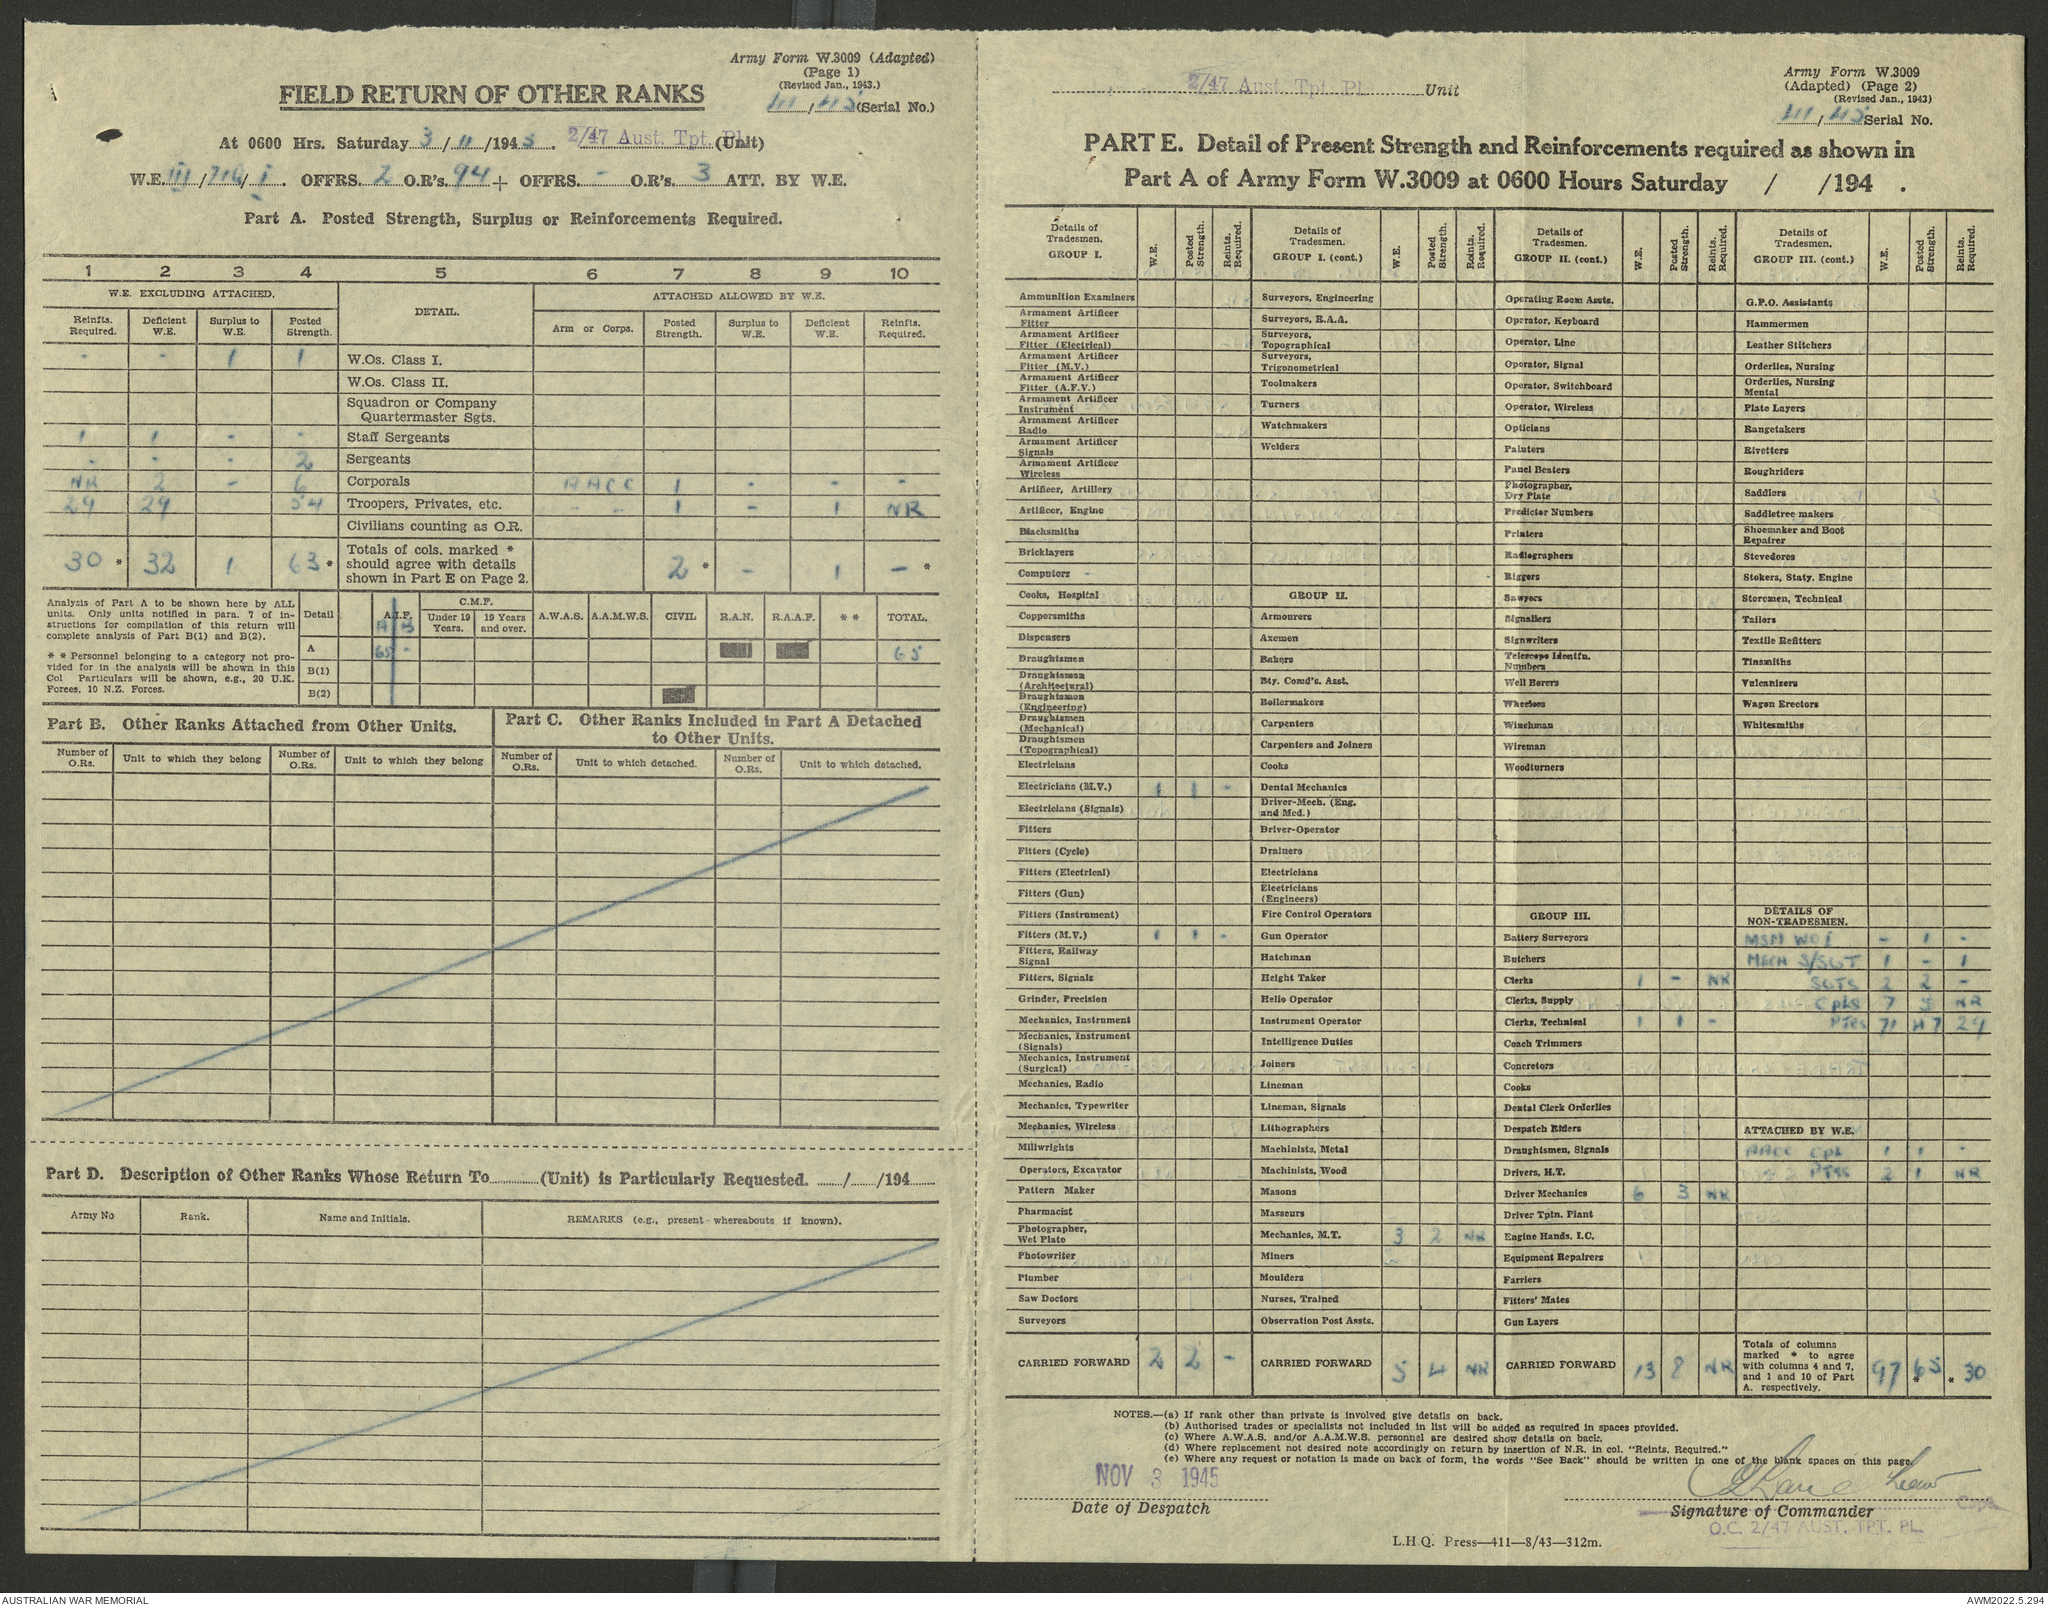 Army Form W.3009 (Adapted)
(Page 1)
(Revised Jan., 1943.)
(Serial No.)
FIELD RETURN OF OTHER RANKS
At 0600 Hrs. Saturday 3/11/1945. 2/47 Aust. Tpt. Pl. (Unit)
W.E. III/ / i. OFFRS. 2 O.R's. 94 + OFFRS. - O.R's. 3 ATT. BY W.E.
Part A. Posted Strength, Surplus or Reinforcements Required.
1 2 3 4 5 6 7 8 9 10
W.E. EXCLUDING ATTACHED. DETAIL. ATTACHED ALLOWED BY W.E.
Reinfts. Required. Deficient W.E. Surplus to W.E. Posted Strength. Arm or Corps. Posted Strength. Surplus to W.E. Deficient W.E. Reinfts. Required.
- - 1 1 W.Os. Class I.
W.Os. Class II.
Squadron or Company
Quartermaster Sgts.
1 1 - - Staff Sergeants
- - - 2 Sergeants
NR 2 - 6 Corporals AACC 1 - - -
29 29 54 Troopers, Privates, etc. - - 1 - 1 NR
Civilians counting as O.R.
30 * 32 1 63 * Totals of cols. marked * should agree with details shown in Part E on Page 2. 2 * - 1 - *
Analysis of Part A to be shown here by ALL
units. Only units notified in para. 7 of in-
structions for compilation of this return will
complete analysis of Part B(1) and B(2).
* * Personnel belonging to a category not pro-
vided for in the analysis will be shown in this
Col Particulars will be shown, e.g., 20 U.K.
Forces, 10 N.Z. Forces.
Detail A.I.F. C.M.F. Under 19 Years. 19 Years and over. A.W.A.S. A.A.M.W.S. CIVIL R.A.N. R.A.A.F. * * TOTAL.
A B
A 65 - 65
B(1)
B(2)
Part B. Other Ranks Attached from Other Units.
Number of O.Rs. Unit to which they belong Number of O.Rs. Unit to which they belong
Part C. Other Ranks Included in Part A Detached
to Other Units.
Number of O.Rs. Unit to which detached. Number of O.Rs. Unit to which detached.
Part D. Description of Other Ranks Whose Return To (Unit) is Particularly Requested. / /194
Army No Rank. Name and Initials. REMARKS (e.g., present whereabouts if known).
2/47 Aust. Tpt. Pl. Unit
Army Form W.3009
(Adapted) (Page 2)
(Revised Jan., 1943)
Serial No.
PART E. Detail of Present Strength and Reinforcements required as shown in
Part A of Army Form W.3009 at 0600 Hours Saturday / /194 .
Details of Tradesmen. GROUP I. W.E. Posted Strength. Reints. Required.
Ammunition Examiners
Armament Artificer Fitter
Armament Artificer Fitter (Electrical)
Armament Artificer Fitter (M.V.)
Armament Artificer Fitter (A.F.V.)
Armament Artificer Instrument
Armament Artificer Radio
Armament Artificer Signals
Armament Artificer Wireless
Artificer, Artillery
Artificer, Engine
Blacksmiths
Bricklayers
Computors
Cooks, Hospital
Coppersmiths
Dispensers
Draughtsmen
Draughtsmen (Architectural)
Draughtsmen (Engineering)
Draughtsmen (Mechanical)
Draughtsmen (Topographical)
Electricians
Electricians (M.V.) 1 1 -
Electricians (Signals)
Fitters
Fitters (Cycle)
Fitters (Electrical)
Fitters (Gun)
Fitters (Instrument)
Fitters (M.V.) 1 1 -
Fitters, Railway Signal
Fitters, Signals
Grinder, Precision
Mechanics, Instrument
Mechanics, Instrument (Signals)
Mechanics, Instrument (Surgical)
Mechanics, Radio
Mechanics, Typewriter
Mechanics, Wireless
Millwrights
Operators, Excavator
Pattern Maker
Pharmacist
Photographer, Wet Plate
Photowriter
Plumber
Saw Doctors
Surveyors
CARRIED FORWARD 2 2 -
Details of Tradesmen. GROUP I. (cont.) W.E. Posted Strength. Reints. Required.
Surveyors, Engineering
Surveyors, R.A.A.
Surveyors, Topographical
Surveyors, Trigonometrical
Toolmakers
Turners
Watchmakers
Welders
GROUP II.
Armourers
Axemen
Bakers
Bty. Comd's. Asst.
Boilermakers
Carpenters
Carpenters and Joiners
Cooks
Dental Mechanics
Driver-Mech. (Eng. and Med.)
Driver-Operator
Drainers
Electricians
Electricians (Engineers)
Fire Control Operators
Gun Operator
Hatchman
Height Taker
Helio Operator
Instrument Operator
Intelligence Duties
Joiners
Lineman
Lineman, Signals
Lithographers
Machinists, Metal
Machinists, Wood
Masons
Masseurs
Mechanics, M.T. 3 2 NR
Miners
Moulders
Nurses, Trained
Observation Post Assts.
CARRIED FORWARD 5 4 NR
Details of Tradesmen. GROUP II. (cont.) W.E. Posted Strength. Reints. Required.
Operating Room Assts.
Operator, Keyboard
Operator, Line
Operator, Signal
Operator, Switchboard
Operator, Wireless
Opticians
Painters
Panel Beaters
Photographer, Dry Plate
Predictor Numbers
Printers
Radiographers
Riggers
Sawyers
Signallers
Signwriters
Telescope Identfn. Numbers
Well Borers
Wheelers
Winchman
Wireman
Woodturners
GROUP III.
Battery Surveyors
Butchers
Clerks 1 - NR
Clerks, Supply
Clerks, Technical 1 1 -
Coach Trimmers
Concretors
Cooks
Dental Clerk Orderlies
Despatch Riders
Draughtsmen, Signals
Drivers, H.T.
Driver Mechanics 6 3 NR
Driver Tptn. Plant
Engine Hands, I.C.
Equipment Repairers
Farriers
Fitters' Mates
Gun Layers
CARRIED FORWARD 13 8 NR
Details of Tradesmen. GROUP III. (cont.) W.E. Posted Strength. Reints. Required.
G.P.O. Assistants
Hammermen
Leather Stitchers
Orderlies, Nursing
Orderlies, Nursing Mental
Plate Layers
Rangetakers
Rivetters
Roughriders
Saddlers
Saddletree makers
Shoemaker and Boot Repairer
Stevedores
Stokers, Staty. Engine
Storemen, Technical
Tailors
Textile Refitters
Tinsmiths
Vulcanizers
Wagon Erectors
Whitesmiths
DETAILS OF NON-TRADESMEN.
MSM WO i - 1 -
MECH S/SGT 1 - 1
SGTS 2 2 -
Cpls 7 5 NR
Ptes 71 47 29
ATTACHED BY W.E.
AACC Cpl 1 1 -
Ptes 2 1 NR
Totals of columns marked * to agree with columns 4 and 7, and 1 and 10 of Part A. respectively. 97 65 * * 30
NOTES.—(a) If rank other than private is involved give details on back.
(b) Authorised trades or specialists not included in list will be added as required in spaces provided.
(c) Where A.W.A.S. and/or A.A.M.W.S. personnel are desired show details on back.
(d) Where replacement not desired note accordingly on return by insertion of N.R. in col. "Reints. Required."
(e) Where any request or notation is made on back of form, the words "See Back" should be written in one of the blank spaces on this page.
NOV 3 1945
Date of Despatch
Signature of Commander
O.C. 2/47 AUST. TPT. PL.
L.H.Q. Press—411—8/43—312m.
AUSTRALIAN WAR MEMORIAL
AWM2022.5.294